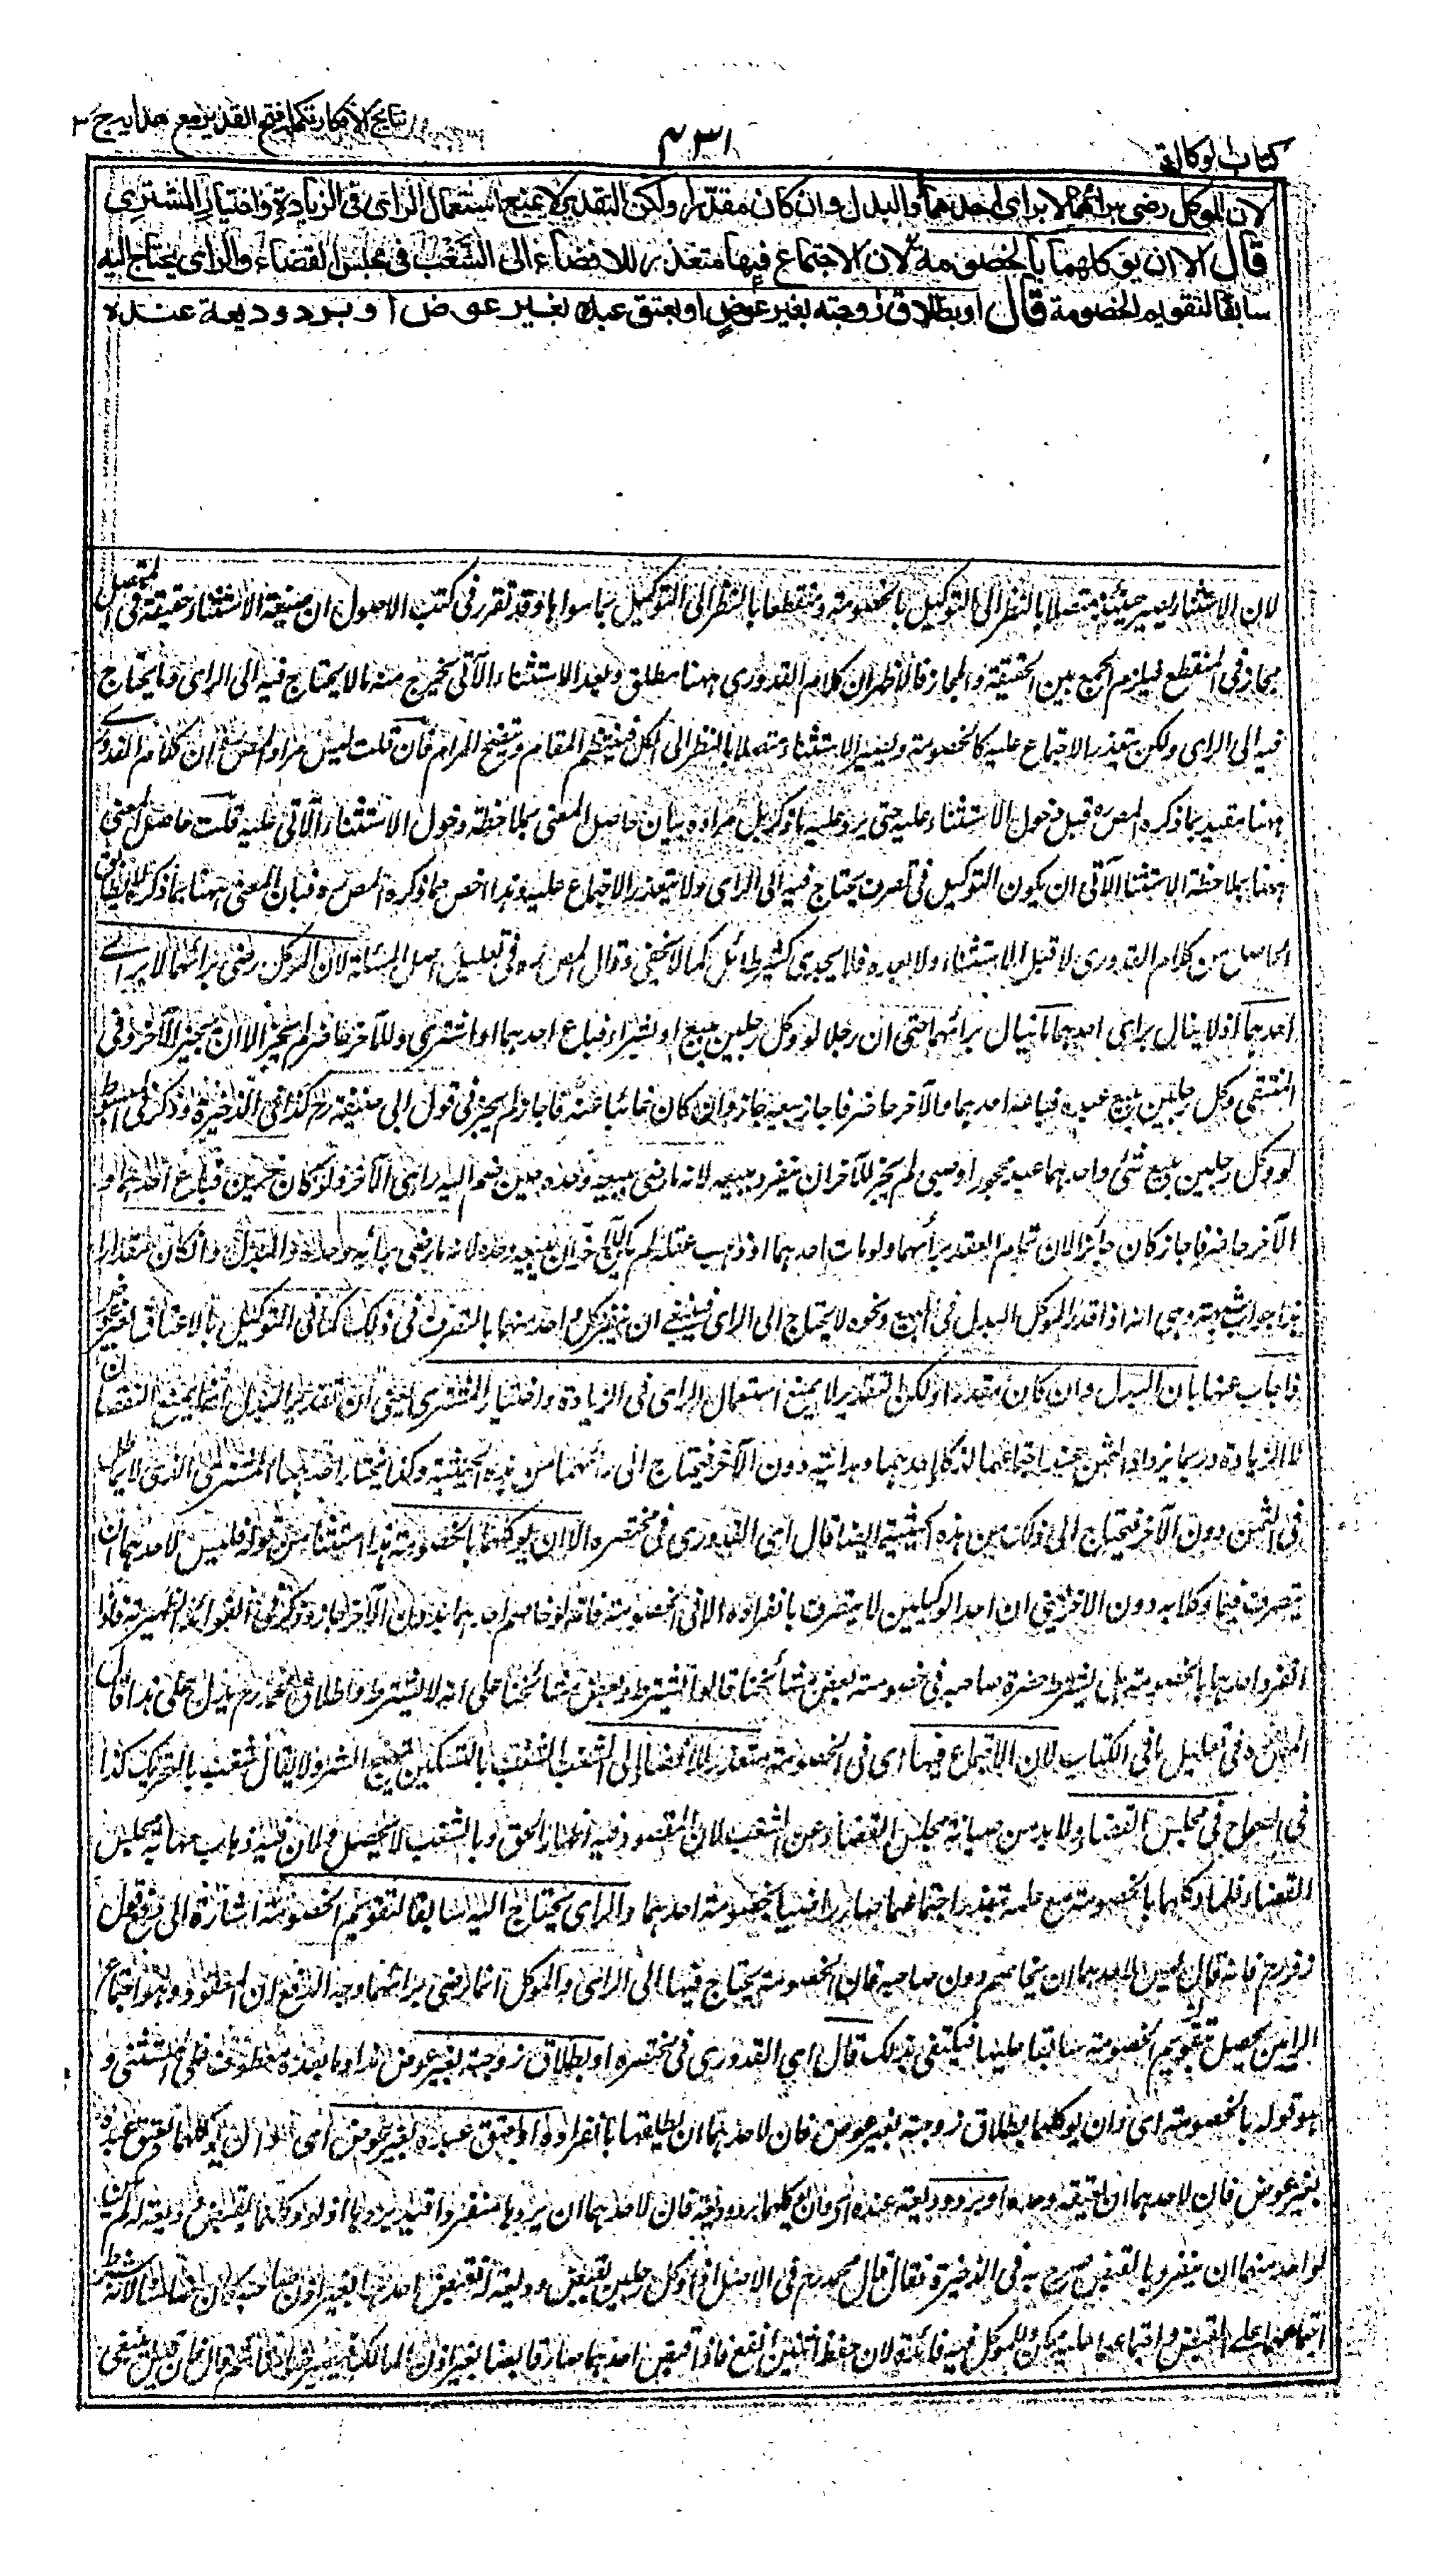 كتاب الوكالة
٤٣١
نتائج الافكار تكملة فتح القدير مع هداية ج ٣
لان الموكل رضى برائهما لا براى احدهما والبدل وان كان مقدرا ولكن التقدير لا يمنع استعمال الراى فى الزيادة واختيار المشترى
قال الا ان يوكلهما بالخصومة لان الاجتماع فيها متعذر للافضاء الى الشغب فى مجلس القضاء والراى يحتاج اليه
سابقا لتقويم الخصومة قال او بطلاق زوجته بغير عوض او بعتق عبده بغير عوض او برد وديعة عنده
لان الاستثناء يصير حينئذ متصلا بالنظر الى التوكيل بالخصومة ومنقطعا بالنظر الى التوكيل بما سواها وقد تقرر فى كتب الاصول ان صيغة الاستثناء حقيقة فى المتصل
مجاز فى المنقطع فيلزم الجمع بين الحقيقة والمجاز فالاظهر ان كلام القدورى ههنا مطلق وبعد الاستثناء الآتى يخرج منه ما لا يحتاج فيه الى الراى وما يحتاج
فيه الى الراى ولكن يتعذر الاجتماع عليه كالخصومة ويصير الاستثناء متصلا بالنظر الى الكل فينتظم المقام ويتضح المرام فان قلت ليس مراد المص ان كلام القدورى
ههنا مقيد بما ذكره المص ره قبل دخول الاستثناء عليه حتى يرد عليه ما ذكر بل مراده بيان حاصل المعنى بملاحظة دخول الاستثناء الآتى عليه قلت حاصل المعنى
ههنا بملاحظة الاستثناء الآتى ان يكون التوكيل فى تصرف يحتاج فيه الى الراى ولا يتعذر الاجتماع عليه وهذا اخص مما ذكره المص ره فبان المعنى ههنا بما ذكره لا يطابق
الحاصل من كلام القدورى لا قبل الاستثناء ولا بعده فلا يجدى كثير طائل كما لا يخفى وقال المص ره فى تعليل اصل المسئلة لان الموكل رضى برائهما لا براى
احدهما اذ لا ينال براى احدهما ما ينال برائهما حتى ان رجلا لو وكل رجلين ببيع او بشراء فباع احدهما او اشترى والآخر حاضر لم يجز الا ان يجيز الآخر وفى
المنتقى وكل رجلين ببيع عبده فباعه احدهما والآخر حاضر فاجاز بيعه جاز وان كان غائبا عنه فاجاز لم يجز فى قول ابى حنيفة رح كذا فى الذخيرة وذكر فى المبسوط
لو وكل رجلين ببيع شئ واحدهما عبد محجور او صبى لم يجز للآخر ان ينفرد ببيعه لانه ما رضى ببيعه وحده حين ضم اليه راى الآخر ولو كان حرين فباع احدهما و
الآخر حاضر فاجاز كان جائزا لان تمام العقد برأيهما ولو مات احدهما او ذهب عقله لم يكن للآخر ان يبيعه وحده لانه ما رضى برائه وحده والبدل وان كان مقدرا
هذا جواب شبهة وهى انه اذا قدر الموكل البدل فى البيع ونحوه لا يحتاج الى الراى فينبغى ان ينفرد كل واحد منهما بالتصرف فى ذلك كما فى التوكيل بالاعتاق بغير عوض
فاجاب عنها بان البدل وان كان مقدرا ولكن التقدير لا يمنع استعمال الراى فى الزيادة واختيار المشترى يعنى ان تقدير البدل انما يمنع النقصان
لا الزيادة وربما يزداد الثمن عند اجتماعهما لذكاء احدهما وهدايته دون الآخر فيحتاج الى رأيهما من هذه الحيثية وكذا يختار احدهما المشترى الذى لا يماطل
فى الثمن دون الآخر فيحتاج الى ذلك من هذه الحيثية ايضا قال اى القدورى فى مختصره الا ان يوكلهما بالخصومة هذا استثناء من قوله فليس لاحدهما ان
يتصرف فيما وكلا به دون الآخر يعنى ان احد الوكيلين لا يتصرف بانفراده الا فى الخصومة فانه لو خاصم احدهما بدون الآخر جاز وذكر فى الفوائد الظهيرية فاذا
انفرد احدهما بالخصومة هل يشترط حضرة صاحبه فى خصومته بعض مشائخنا قالوا يشترط وبعض مشائخنا على انه لا يشترط واطلاق محمد رح يدل على هذا قال
المص ره فى تعليل ما فى الكتاب لان الاجتماع فيها اى فى الخصومة متعذر للافضاء الى الشغب الشغب بالتسكين تهييج الشر ولا يقال شغب بالتحريك كذا
فى الصحاح فى مجلس القضاء ولا بد من صيانة مجلس القضاء عن الشغب لان المقصود فيه اظهار الحق وبالشغب لا يحصل ولان فيه ذهاب مهابة مجلس
القضاء فلما وكلهما بالخصومة مع علمه بتعذر اجتماعهما صار راضيا بخصومة احدهما والراى يحتاج اليه سابقا لتقويم الخصومة اشارة الى دفع قول
زفر رح فانه قال ليس لاحدهما ان يخاصم دون صاحبه فان الخصومة يحتاج فيها الى الراى والموكل انما رضى برائهما وجه الدفع ان المقصود وهو اجتماع
الرايين يحصل فى تقويم الخصومة سابقا عليها فيكتفى بذلك قال اى القدورى فى مختصره او بطلاق زوجته بغير عوض هذا وما بعده معطوف على المستثنى و
هو قوله بالخصومة اى وان يوكلهما بطلاق زوجته بغير عوض فان لاحدهما ان يطلقها بانفراده او بعتق عبده بغير عوض اى او ان يوكلهما بعتق عبده
بغير عوض فان لاحدهما ان يعتقه وحده او برد وديعة عنده اى وان يوكلهما برد وديعة فان لاحدهما ان يردها منفردا قيد بردها اذ لو وكلهما بقبض وديعة له لم يكن
لواحد منهما ان ينفرد بالقبض صرح به فى الذخيرة فقال قال محمد رح فى الاصل اذا وكل رجلين بقبض وديعة له فقبض احدهما بغير اذن صاحبه كان ضامنا لانه شرط
اجتماعهما على القبض واجتماعهما عليه ممكن وللموكل فيه فائدة لان حفظ اثنين انفع فاذا قبض احدهما صار قابضا بغير اذن المالك فيصير ضامنا فان قيل ينبغى